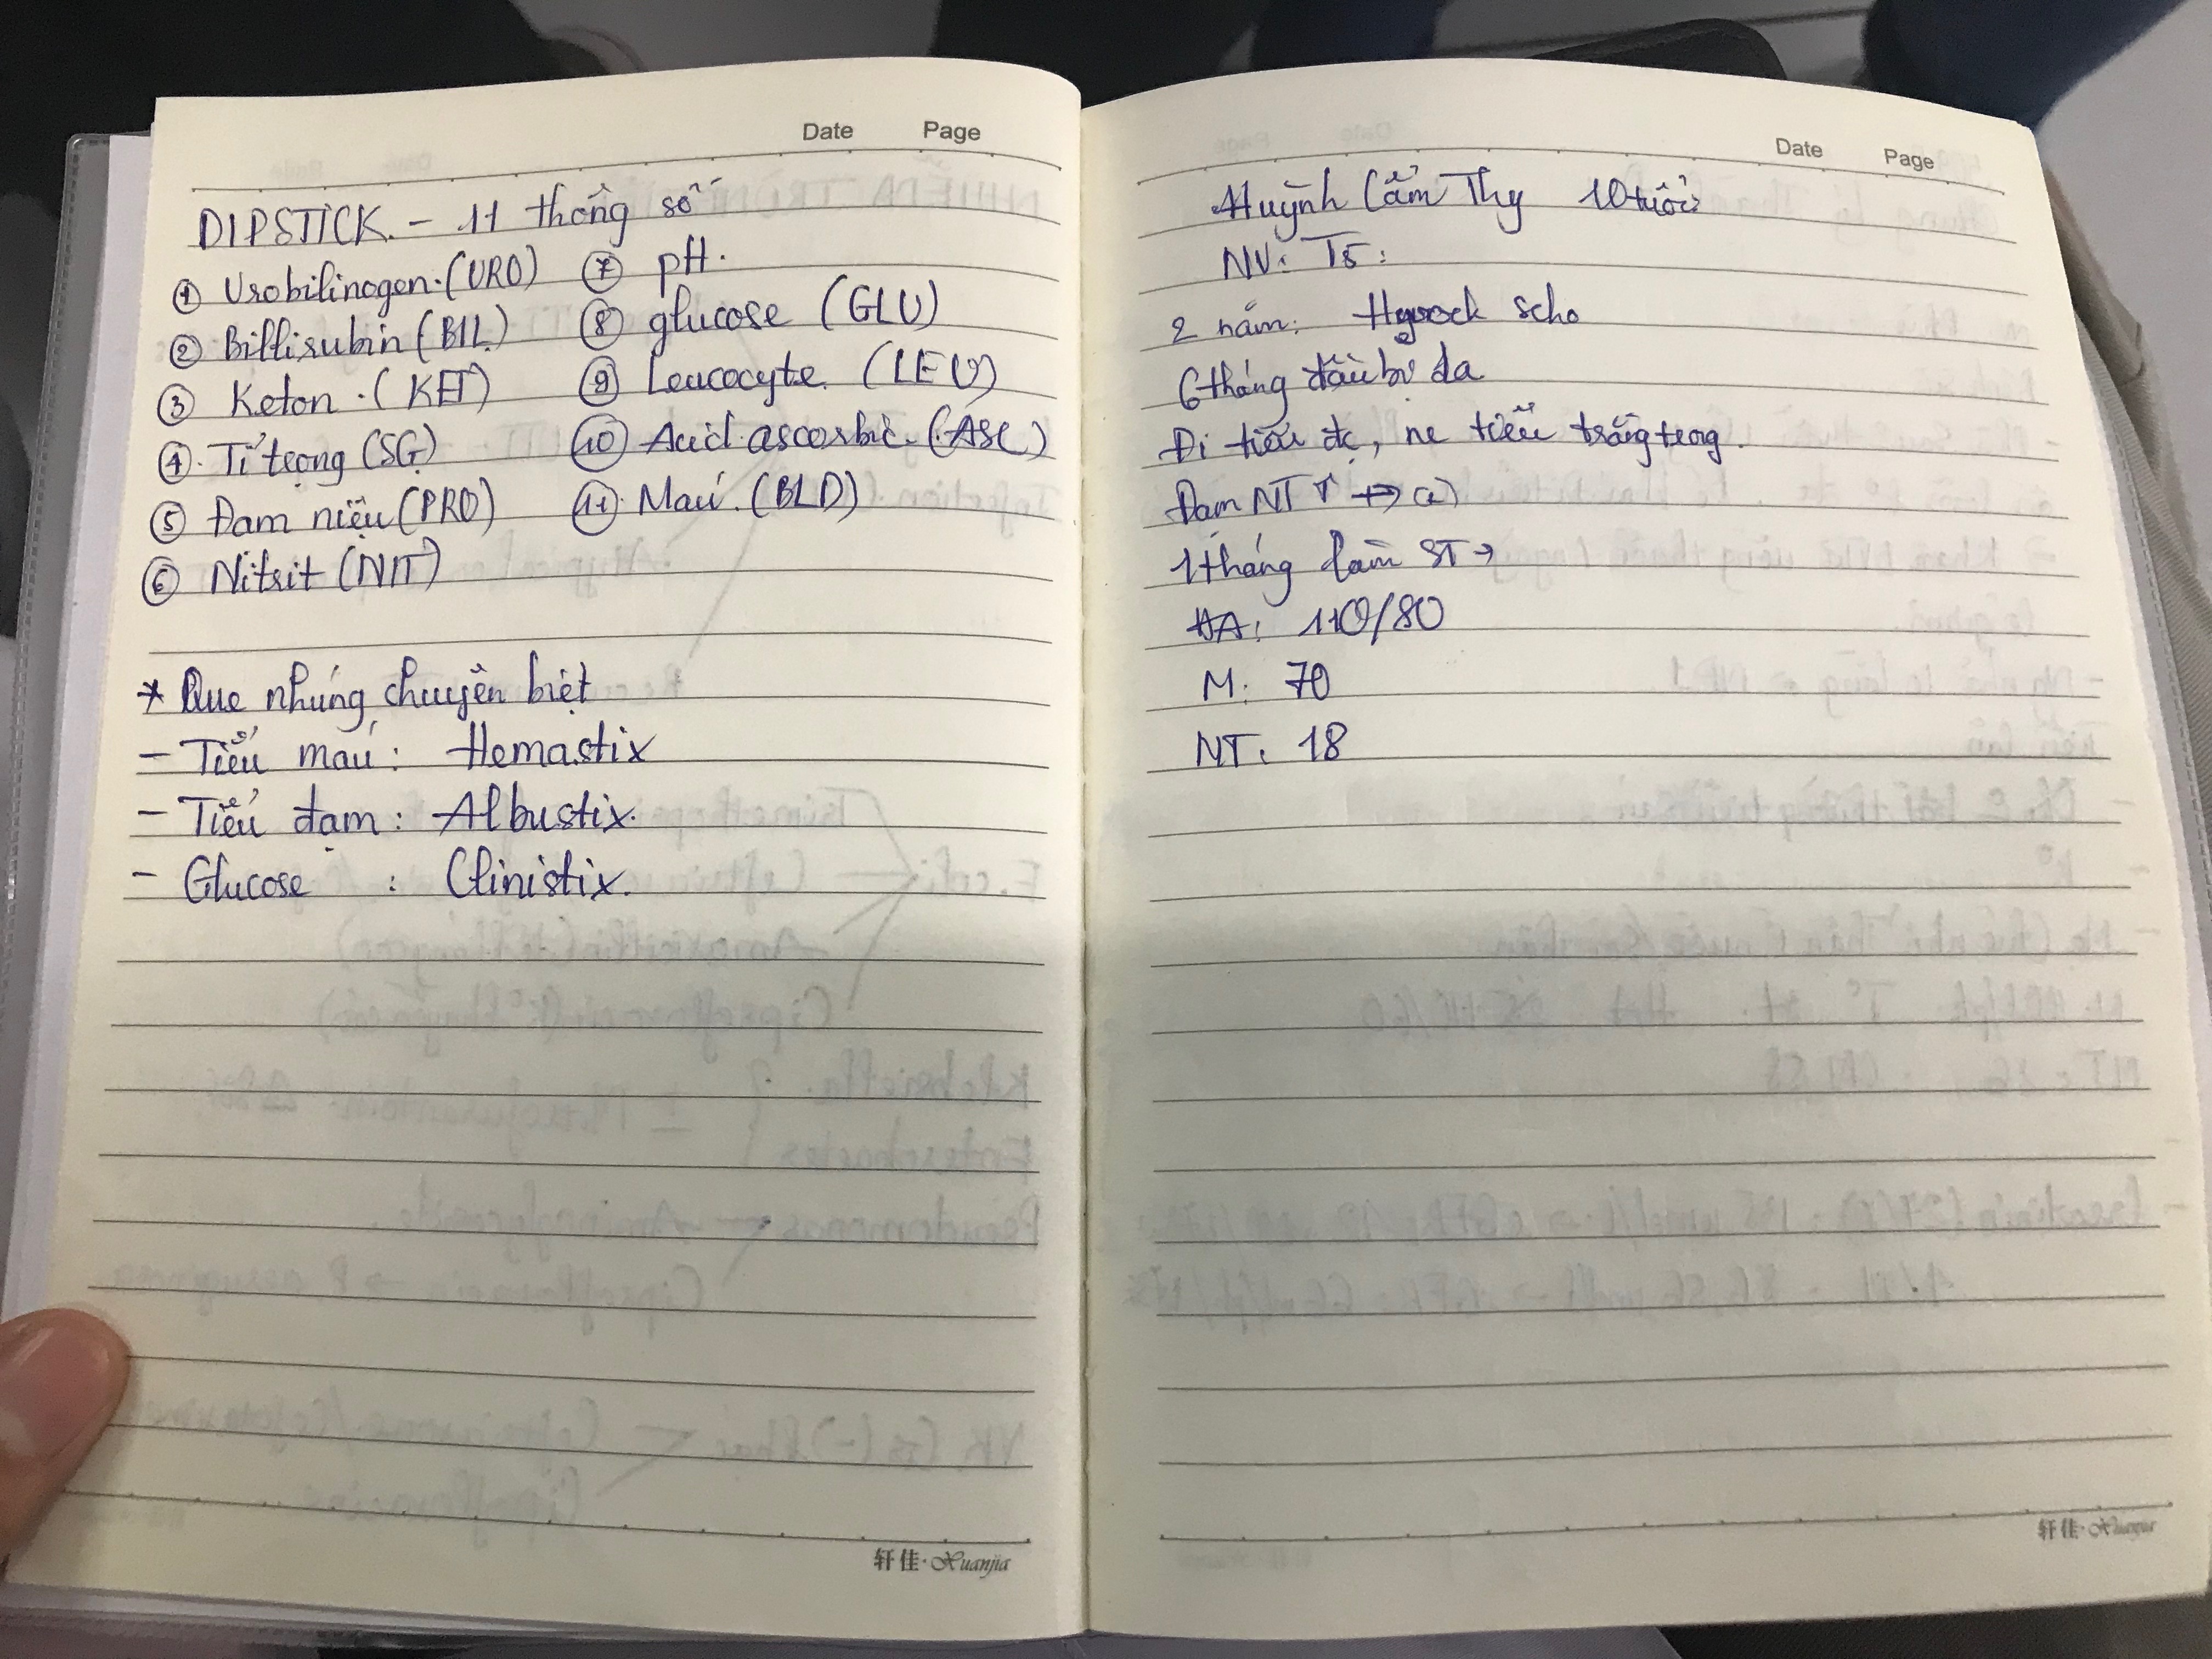 Date Page
DIPSTICK. - 11 thông số
① Urobilinogen. (URO)
② Billirubin (BIL)
③ Keton. (KET)
④. Tỉ trọng (SG)
⑤ Đạm niệu (PRO)
⑥ Nitrit (NIT)
⑦ pH.
⑧ glucose (GLU)
⑨ Leucocyte. (LEU)
⑩ Acid. ascorbic. (ASC)
⑪. Máu. (BLD)
* Que nhúng chuyên biệt
- Tiểu máu: Hemastix
- Tiểu đạm: Albustix.
- Glucose : Clinistix.
轩佳·Huanjia
Date Page
Huỳnh Cẩm Thy 10 tuổi
NV: T5:
2 năm:
6 tháng đầu bv da
Đi tiểu đc, ne tiểu trắng trong.
Đạm NT ↑
1 tháng làm ST →
HA: 110/80
M: 70
NT: 18
轩佳·Huanjia